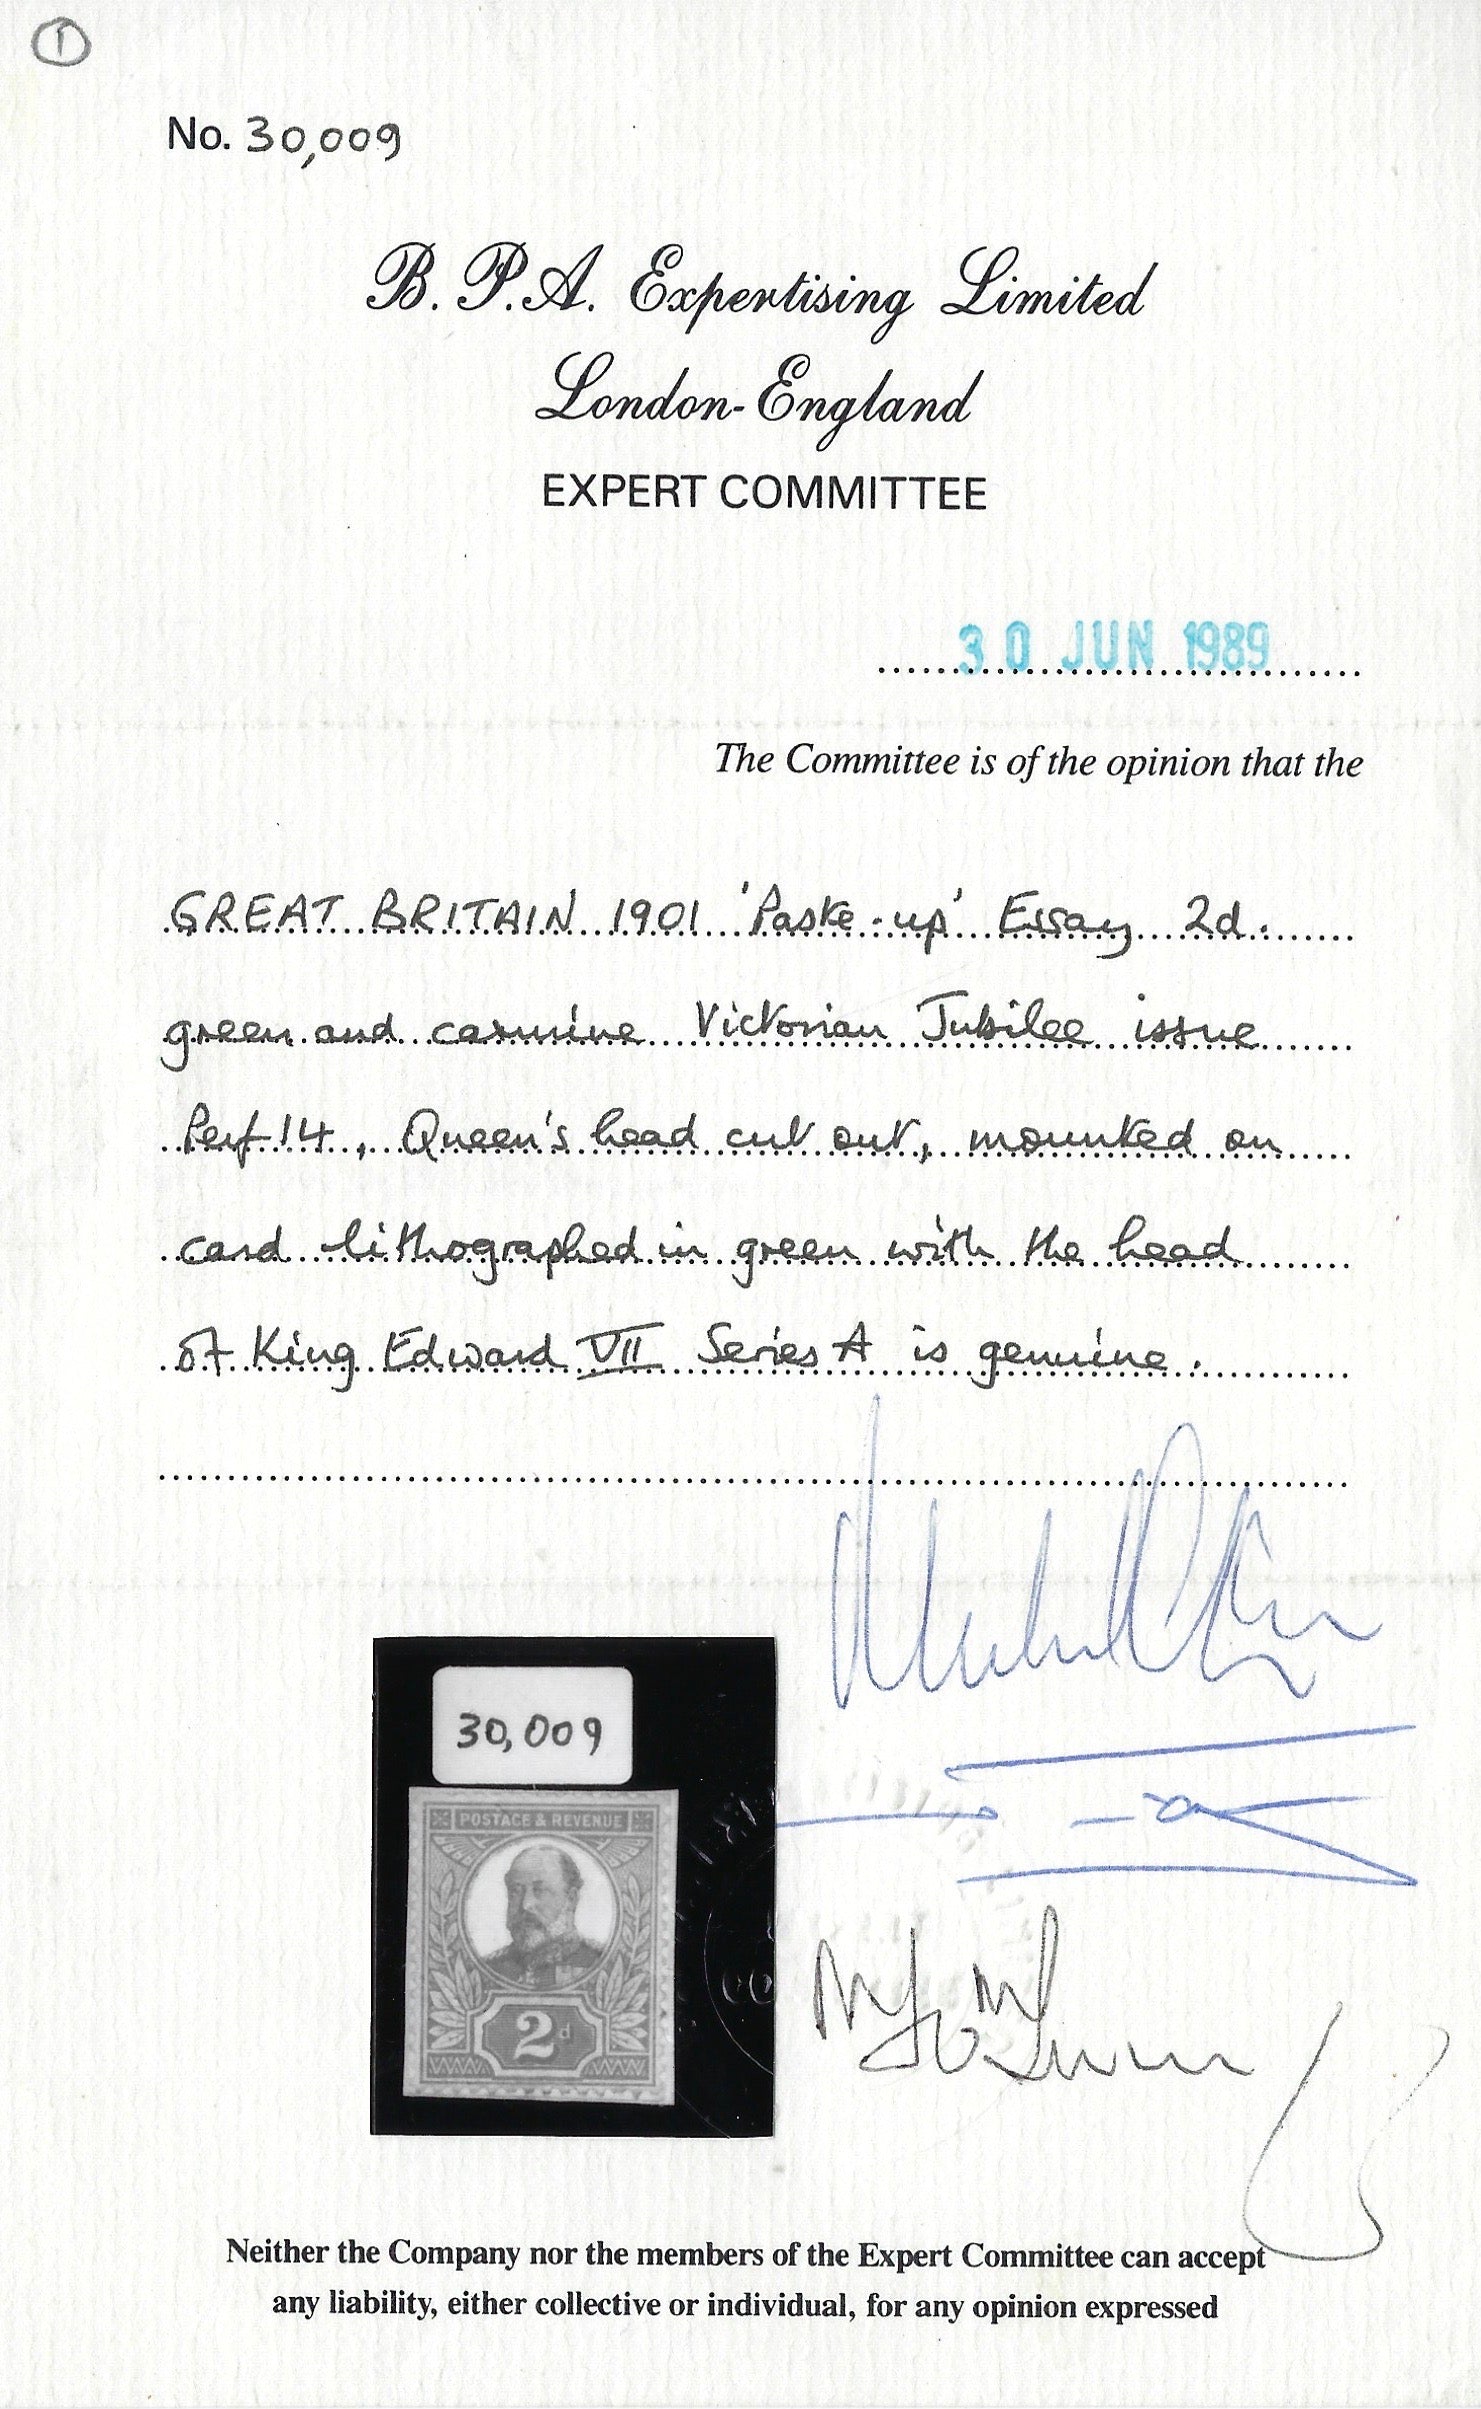 1
No. 30,009
B. P. A. Expertising Limited
London-England
EXPERT COMMITTEE
30 JUN 1989
The Committee is of the opinion that the
GREAT BRITAIN 1901 'Paste-up' Essay 2d.
green and carmine Victorian Jubilee issue
Perf 14, Queen's head cut out, mounted on
card lithographed in green with the head
of King Edward VII Series A is genuine.
30,009
POSTAGE & REVENUE
2d
Neither the Company nor the members of the Expert Committee can accept
any liability, either collective or individual, for any opinion expressed